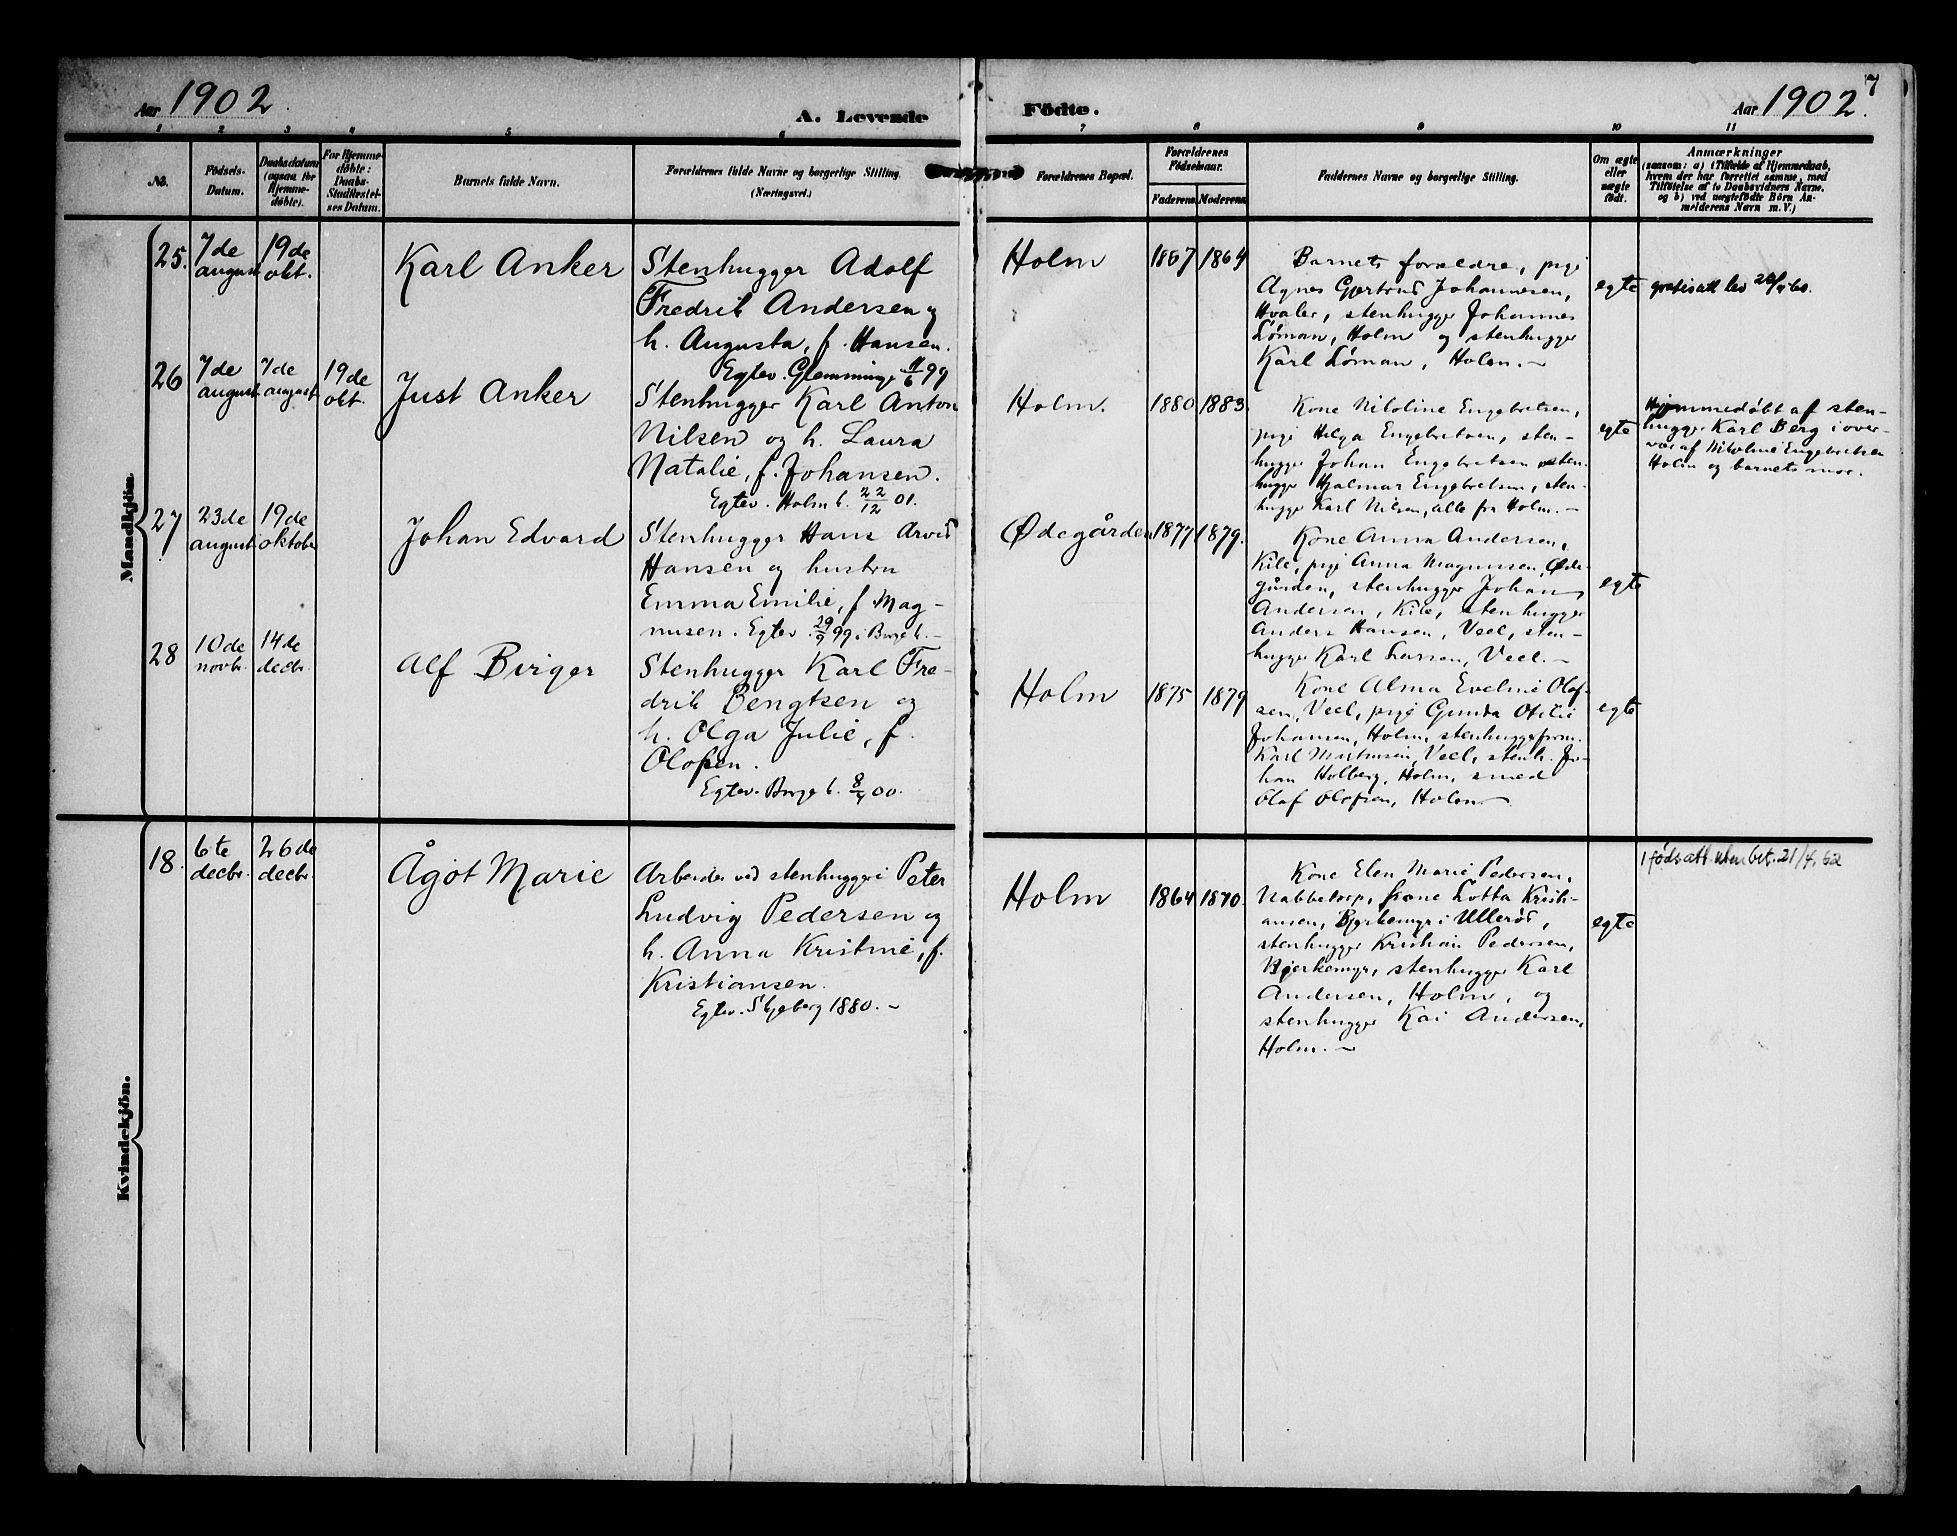 Aar 1902.
A. Levende
Födte.
Aar 1902.
7
1 2 3 4 5 6 7 8 9 10 11
No.
Födsels-
Datum.
Daabsdatum
(ogsaa for
Hjemme-
döbte).
For Hjemme-
döbte:
Daabs-
Stadfæstel-
ses Datum.
Barnets fulde Navn.
Forældrenes fulde Navne og borgerlige Stilling.
(Næringsvei.)
Forældrenes Bopæl.
Forældrenes
Födselsaar.
Faderens
Moderens
Faddernes Navne og borgerlige Stilling.
Om ægte
eller
uægte
født.
Anmærkninger
(saasom: a) i Tilfælde af Hjemmedaab,
hvem der har forrettet samme, med
Tilföielse af to Daabsvidners Navne,
og b) ved uægtefödte Börn An-
melderens Navn m. V.)
Mandkjön.
25.
7de
august
19de
okt.
Karl Anker
Stenhugger Adolf
Fredrik Andersen og
h. Augusta, f. Hansen.
Egtev. Glemminge 99
Holm
1867
1864
Barnets forældre, pige
Agnes Gjertrud Johannesen,
Hvaler, stenhugger Johannes
Löman, Holm og stenhugger
Karl Löman, Holm. –
egte
26
7de
august
7de
august
19de
okt.
Just Anker
Stenhugger Karl Anton
Nilsen og h. Laura
Natalie, f. Johansen.
Egtev. Holm k. 22/12 01.
Holm.
1880
1883.
Kone Nikoline Engebretsen,
pige Helga Engebretsen, sten-
hugger Johan Engebretsen, sten-
hugger Hjalmar Engebretsen, sten-
hugger Karl Nilsen, alle fra Holm. –
egte
Hjemmedöbt af sten-
hugger Karl Berg i over-
vær af Nikoline Engebretsen
Holm og barnets mor.
27
23de
august
19de
oktober
Johan Edvard
Stenhugger Hans Arvid
Hansen og hustru
Emma Emilie, f. Mag-
nusen. Egtev. 29/9 99 i Borge k. –
Ødegården
1877
1879.
Kone Anna Andersen,
Kile, pige Anna Magnusen, Øde-
gården, stenhugger Johan
Andersen, Kile, stenhugger
Anders Hansen, Veel, sten-
hugger Karl Larsen, Veel. –
egte
28
10de
novbr.
14de
decbr.
Alf Birger
Stenhugger Karl Fre-
drik Bengtsen og
h. Olga Julie, f.
Olofsen.
Egtev. Borge k. 00.
Holm
1875
1879
Kone Alma Eveline Olof-
sen, Veel, pige Gunda Otilie
Johansen, Holm, stenhuggerform.
Karl Martinsen, Veel, stenh. Jo-
han Holberg, Holm, smed
Olaf Olofsen, Holm. –
egte
Kvindekjön.
18.
6te
decbr.
26de
decbr.
Ågot Marie
Arbeider ved stenhuggeri Peter
Ludvig Pedersen og
h. Anna Kristine, f.
Kristiansen.
Egtev. Skjeberg 1880. –
Holm
1864
1870.
Kone Elen Marie Pedersen,
Nabbetorp, frøne Lotta Kristi-
ansen, Bjerkemyr i Ullerød,
stenhugger Kristian Pedersen,
Bjerkemyr, stenhugger Karl
Andersen, Holm, og
stenhugger Kai Andersen,
Holm. –
egte
1 fødsatt. uten bet. 21/4. 62